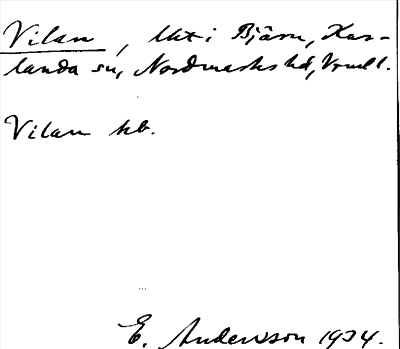 Vilan, lht i Bjärn, Kar-
landa sn, Nordmarks hd, Vrml.
Vilan hb.
E. Andersson 1934.